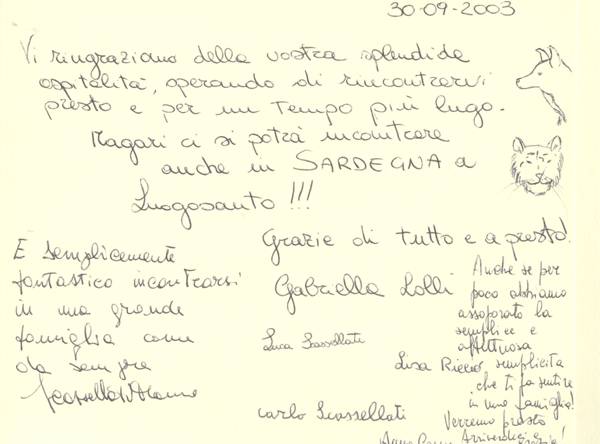 30-09-2003
Vi ringraziamo della vostra splendida
ospitalità, sperando di rincontrarvi
presto e per un tempo più lugo.
Magari ci si potrà incontrare
anche in SARDEGNA a
Luogosanto !!!
Grazie di tutto e a presto!
Gabriella Lolli
Luca Scassellati
Carlo Scassellati
E semplicemente
fantastico incontrarsi
in una grande
famiglia come
da sempre
Anche se per
poco abbiamo
assaporato la
semplice e
affettuosa
semplicità
che ti fa sentire
in una famiglia!
Verremo presto
Arrivederci e
Lisa
Anna